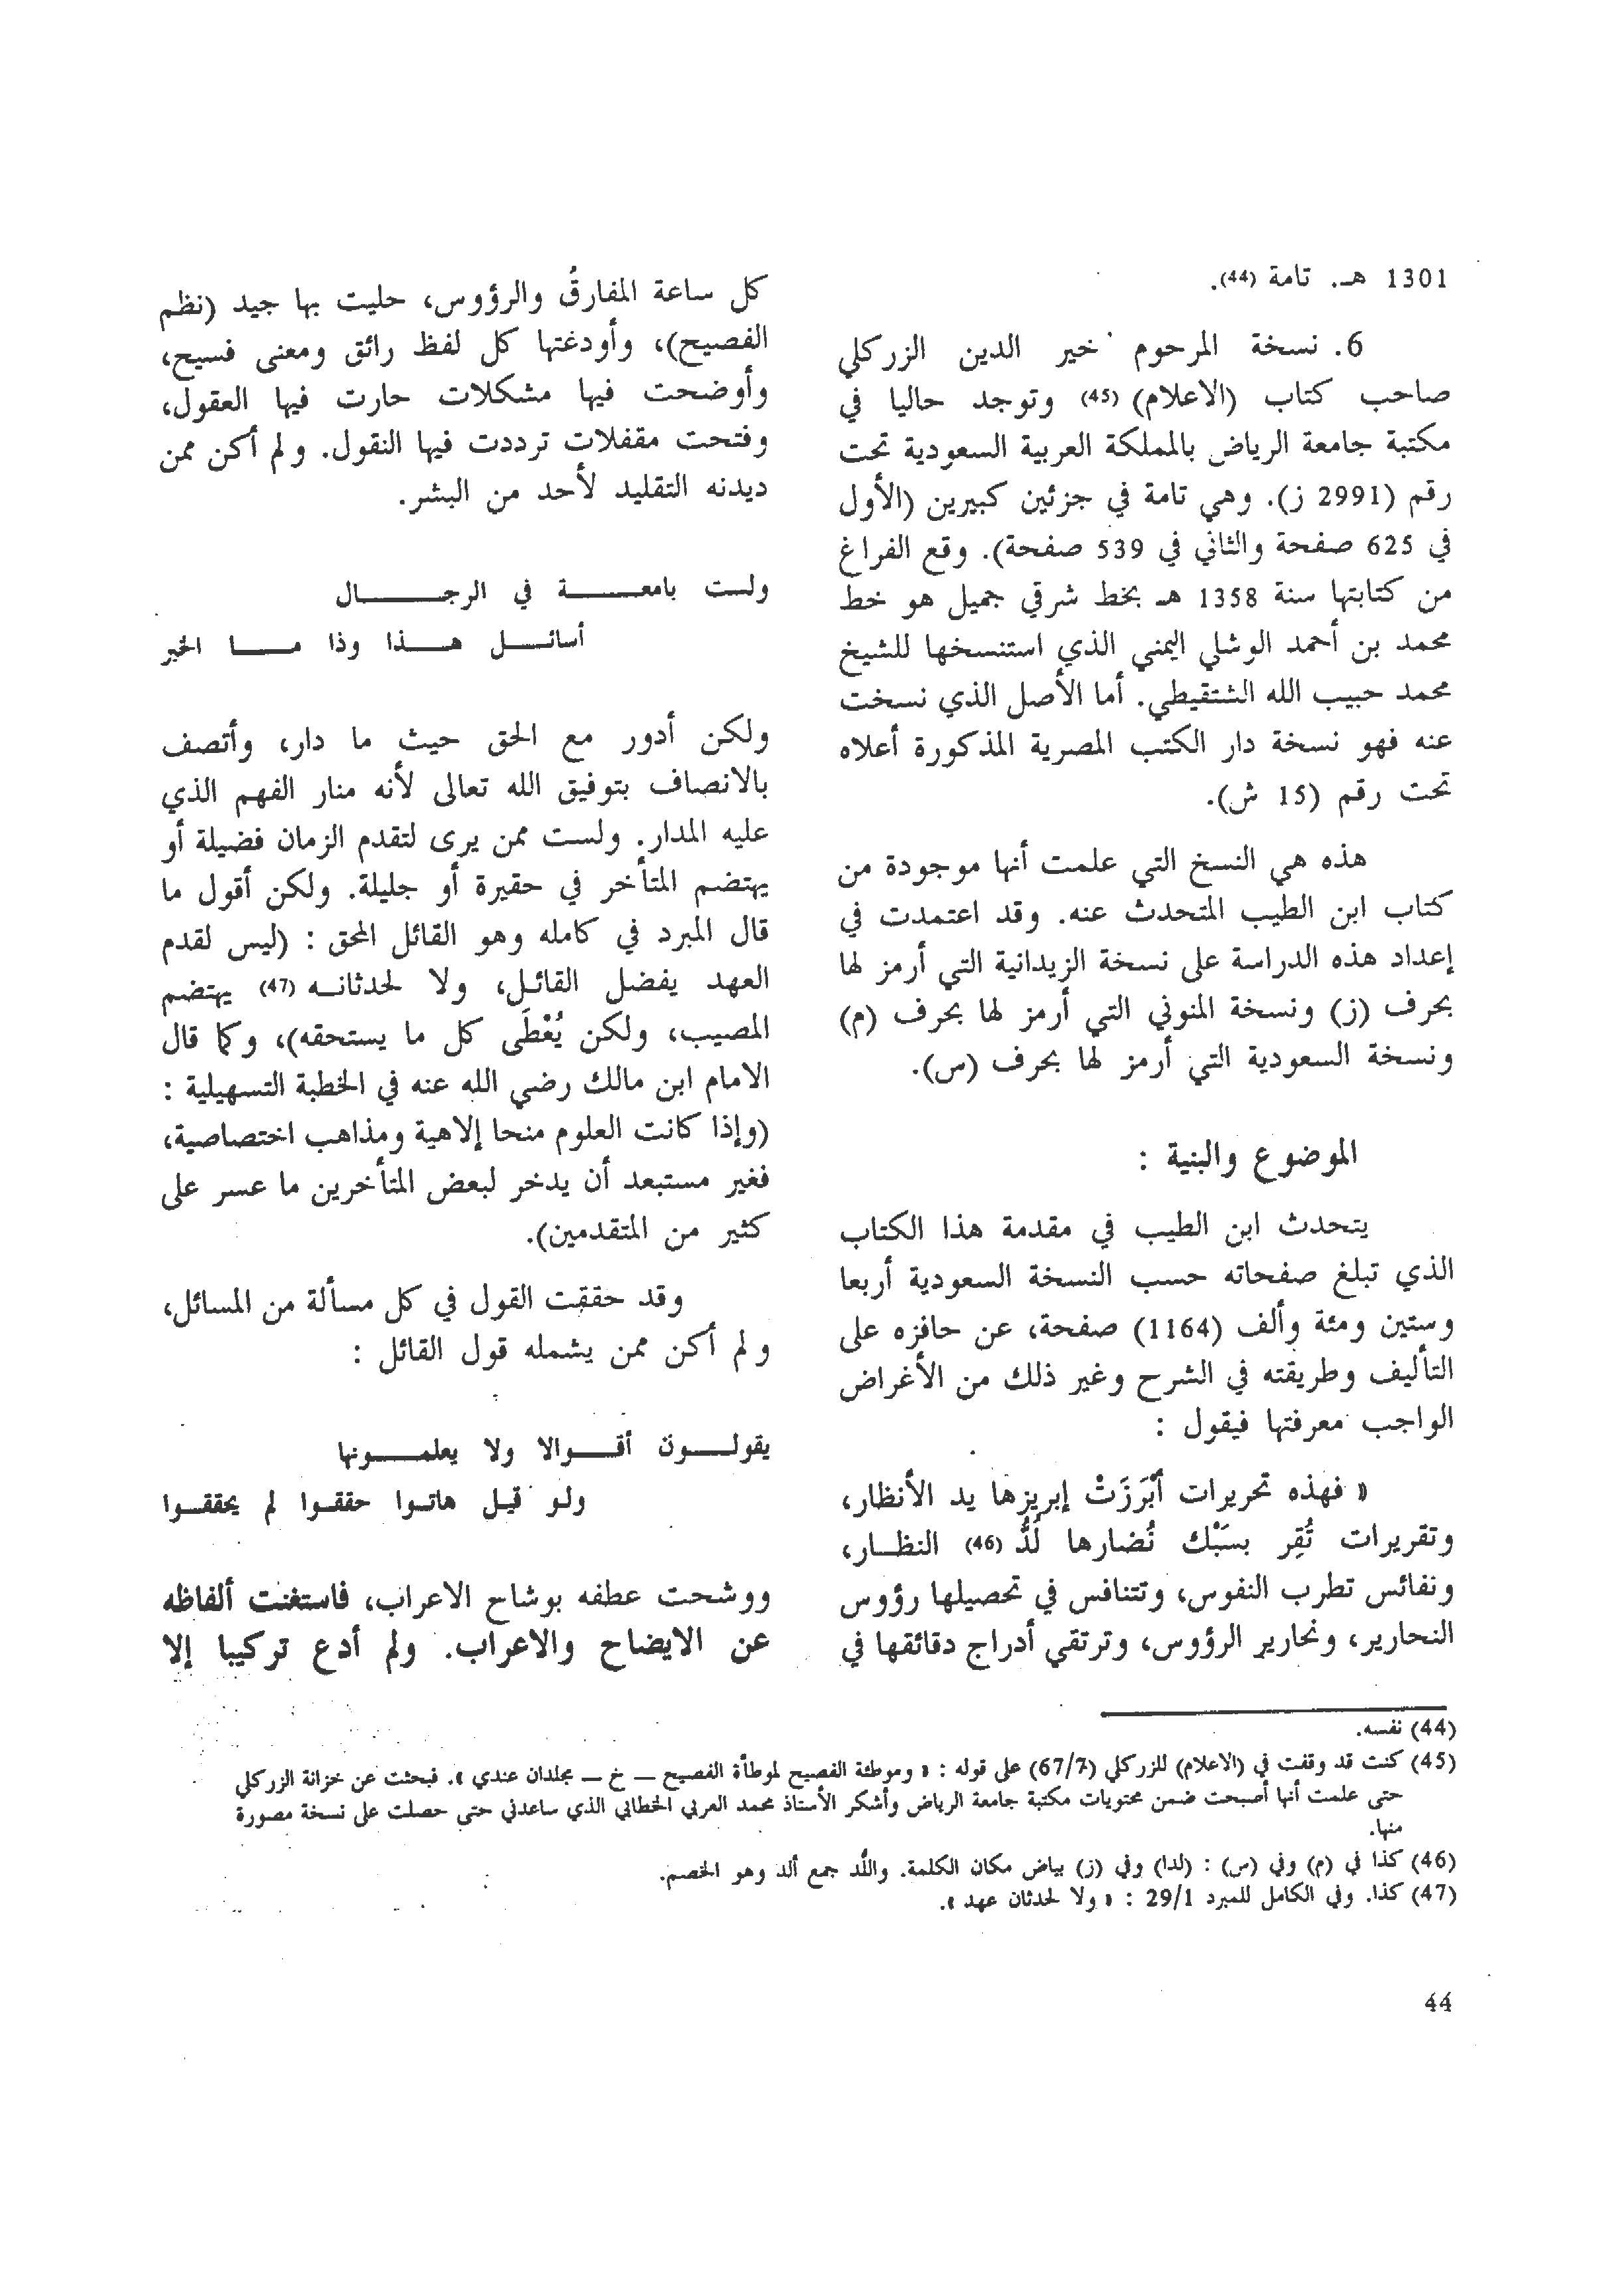 1301 هـ. تامة (44).
6. نسخة المرحوم خير الدين الزركلي
صاحب كتاب (الاعلام) (45) وتوجد حاليا في
مكتبة جامعة الرياض بالمملكة العربية السعودية تحت
رقم (2991 ز). وهي تامة في جزئين كبيرين (الأول
في 625 صفحة والثاني في 539 صفحة). وقع الفراغ
من كتابتها سنة 1358 هـ بخط شرقي جميل هو خط
محمد بن أحمد الوشلي اليمني الذي استنسخها للشيخ
محمد حبيب الله الشتقيطي. أما الأصل الذي نسخت
عنه فهو نسخة دار الكتب المصرية المذكورة أعلاه
تحت رقم (15 ش).
هذه هي النسخ التي علمت أنها موجودة من
كتاب ابن الطيب المتحدث عنه. وقد اعتمدت في
إعداد هذه الدراسة على نسخة الزيدانية التي أرمز لها
بحرف (ز) ونسخة المنوني التي أرمز لها بحرف (م)
ونسخة السعودية التي أرمز لها بحرف (س).
الموضوع والبنية :
يتحدث ابن الطيب في مقدمة هذا الكتاب
الذي تبلغ صفحاته حسب النسخة السعودية أربعا
وستين ومئة وألف (1164) صفحة، عن حافزه على
التأليف وطريقته في الشرح وغير ذلك من الأغراض
الواجب معرفتها فيقول :
« فهذه تحريرات أَبْرَزَتْ إبريزها يد الأنظار،
وتقريرات تُقِر بسَبْك نُضارها لُدُّ (46) النظـار،
ونفائس تطرب النفوس، وتتنافس في تحصيلها رؤوس
النحارير، ونحارير الرؤوس، وترتقي أدراج دقائقها في
كل ساعة المفارقُ والرؤوس، حليت بها جيد (نظم
الفصيح)، وأودغتها كل لفظ رائق ومعنى فسيح،
وأوضحت فيها مشكلات حارت فيها العقول،
وفتحت مقفلات ترددت فيها النقول. ولم أكن ممن
ديدنه التقليد لأحد من البشر.
ولست بامعـــة في الرجـــال
أسائـل هـذا وذا مـا الخبر
ولكن أدور مع الحق حيث ما دار، وأتصف
بالانصاف بتوفيق الله تعالى لأنه منار الفهم الذي
عليه المدار. ولست ممن يرى لتقدم الزمان فضيلة أو
يهتضم المتأخر في حقيرة أو جليلة. ولكن أقول ما
قال المبرد في كامله وهو القائل المحق : (ليس لقدم
العهد يفضل القائـل، ولا لحدثانـه (47) يهتضم
المصيب، ولكن يُعْطَى كل ما يستحقه)، وكما قال
الامام ابن مالك رضي الله عنه في الخطبة التسهيلية :
(وإذا كانت العلوم منحا إلاهية ومذاهب اختصاصية،
فغير مستبعد أن يدخر لبعض المتأخرين ما عسر على
كثير من المتقدمين).
وقد حققت القول في كل مسألة من المسائل،
ولم أكن ممن يشمله قول القائل :
يقولـون أقـوالا ولا يعلمـونها
ولـو قيـل هاتـوا حققـوا لم يحققـوا
ووشحت عطفه بوشاح الاعراب، فاستغنت ألفاظه
عن الايضاح والاعراب. ولم أدع تركيبا إلا
(44) نفسه.
(45) كنت قد وقفت في (الاعلام) للزركلي (67/7) على قوله : « وموطئة الفصيح لموطأة الفصيح — خ — مجلدان عندي ». فبحثت عن خزانة الزركلي
حتى علمت أنها أصبحت ضمن محتويات مكتبة جامعة الرياض وأشكر الأستاذ محمد العربي الخطابي الذي ساعدني حتى حصلت على نسخة مصورة
منها.
(46) كذا في (م) وفي (س) : (لدا) وفي (ز) بياض مكان الكلمة. واللُّد جمع ألد وهو الخصم.
(47) كذا. وفي الكامل للمبرد 29/1 : « ولا لحدثان عهد ».
44